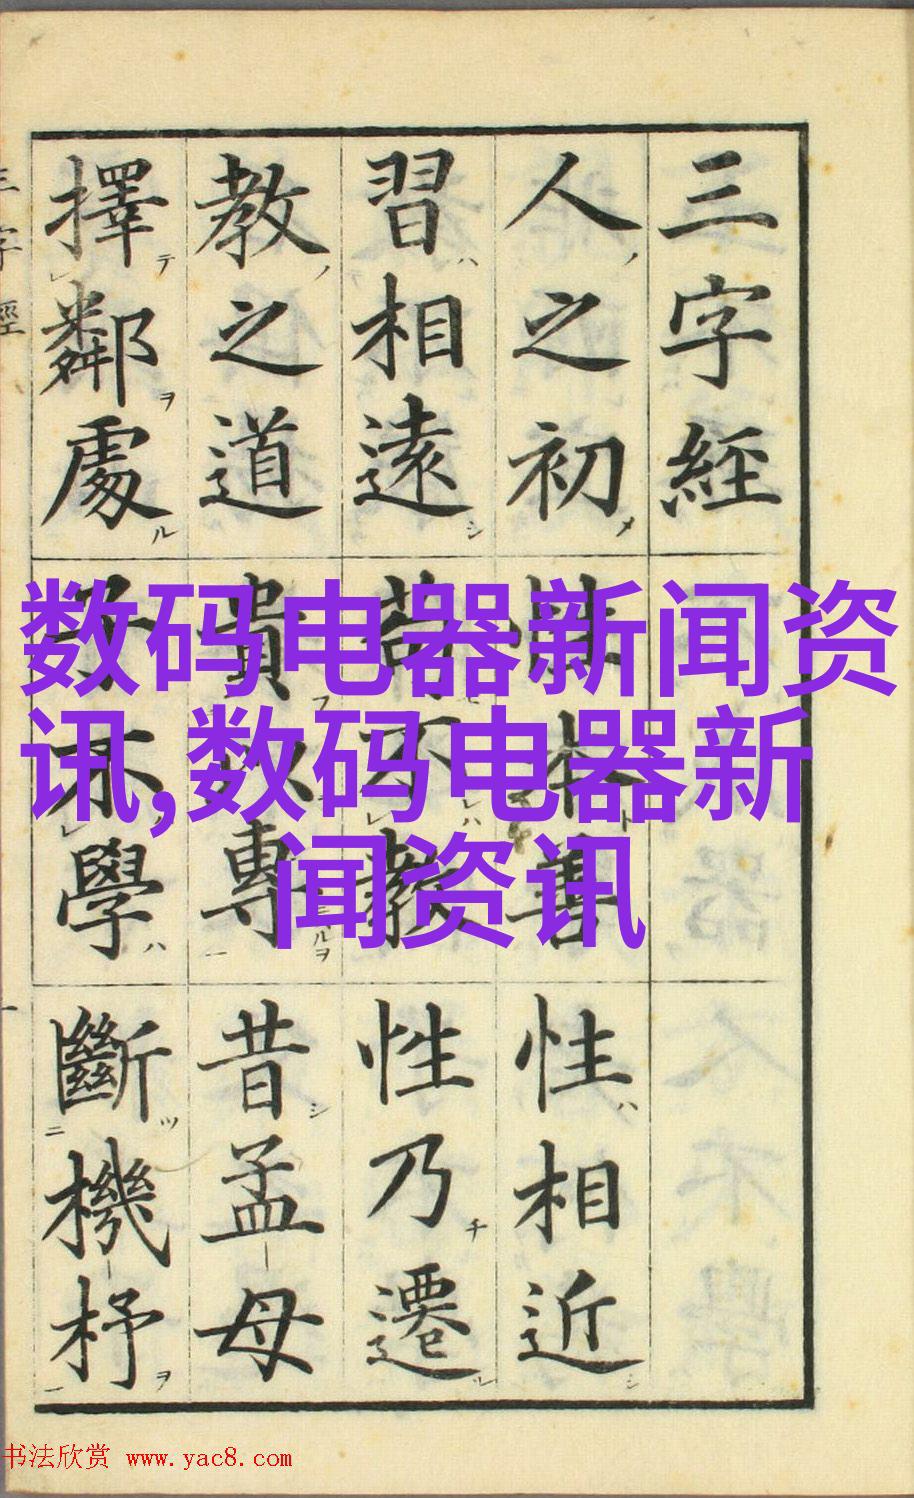 三字経
人之初性本善性相近
習相遠苟不教性乃遷
教之道貴以專昔孟母
擇鄰處子不學斷機杼
三字經
一
数码电器新闻资
讯,数码电器新
闻资讯
书法欣赏 www.yac8.com